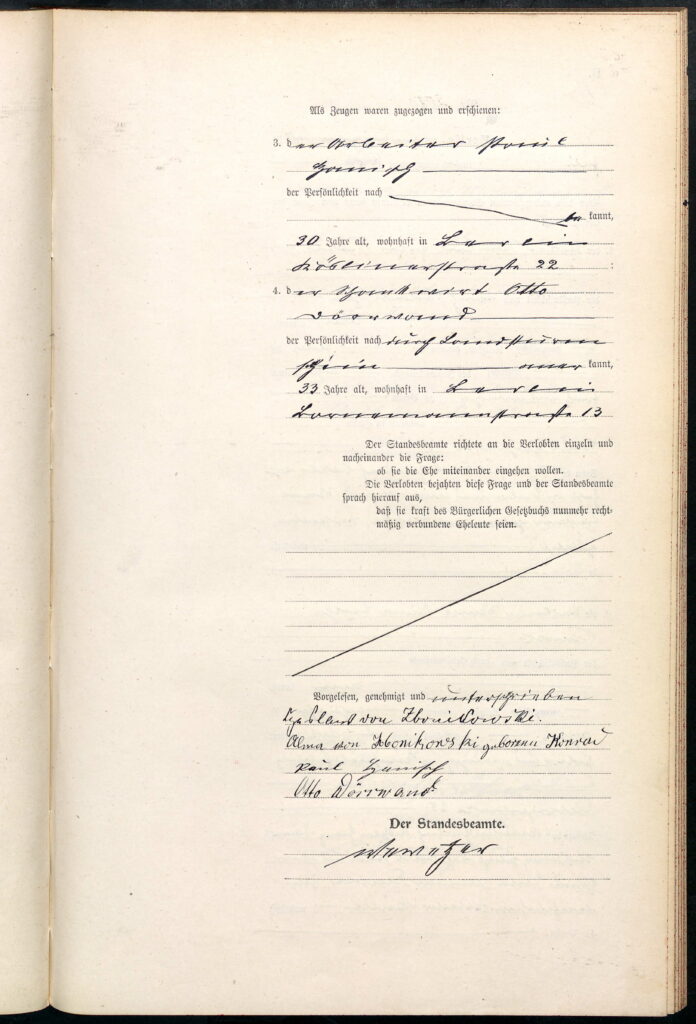 Als Zeugen waren zugezogen und erschienen:
3. der Arbeiter Paul
Hanisch
der Persönlichkeit nach
be kannt,
30 Jahre alt, wohnhaft in Berlin
Kösliner straße 22 ;
4. der Schankwirt Otto
Dörrwand
der Persönlichkeit nach durch Landsturm
schein aner kannt,
33 Jahre alt, wohnhaft in Berlin
Bornemannstraße 13
Der Standesbeamte richtete an die Verlobten einzeln und
nacheinander die Frage:
ob sie die Ehe miteinander eingehen wollen.
Die Verlobten bejahten diese Frage und der Standesbeamte
sprach hierauf aus,
daß sie kraft des Bürgerlichen Gesetzbuchs nunmehr recht-
mäßig verbundene Eheleute seien.
Vorgelesen, genehmigt und unterschrieben
von Zbonikowski.
Alma von Zbonikowski geborenen Konrad
Paul Hanisch
Otto Dörrwand
Der Standesbeamte.